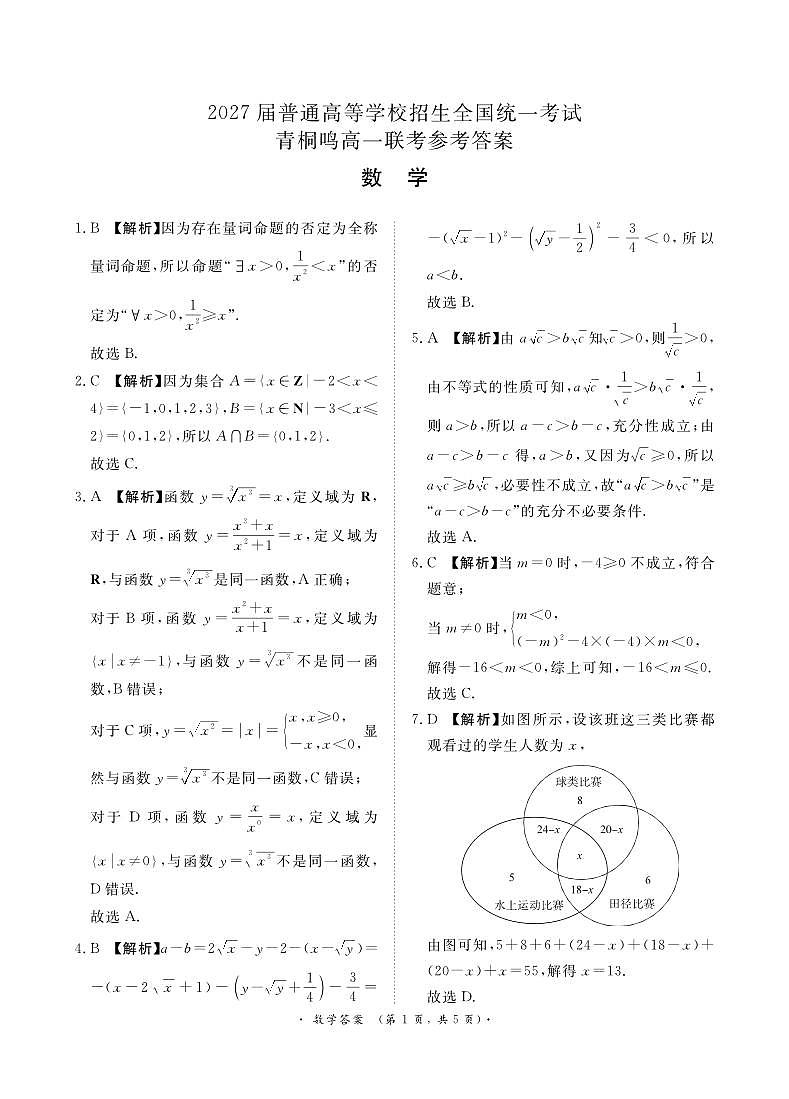 2027 届普通高等学校招生全国统一考试
青桐鸣高一联考参考答案
数 学
1. B 【解析】因为存在量词命题的否定为全称
量词命题,所以命题“∃x>0,1/x²<x”的否
定为“∀x>0,1/x²≥x”.
故选 B.
2. C 【解析】因为集合 A={x∈Z|-2<x<
4}={-1,0,1,2,3},B={x∈N|-3<x≤
2}={0,1,2},所以 A∩B={0,1,2}.
故选 C.
3. A 【解析】函数 y=∛x³=x,定义域为 R,
对于 A 项,函数 y=(x³+x)/(x²+1)=x,定义域为
R,与函数 y=∛x³ 是同一函数,A 正确;
对于 B 项,函数 y=(x²+x)/(x+1)=x,定义域为
{x|x≠-1},与函数 y=∛x³ 不是同一函
数,B 错误;
对于 C 项,y=√x²=|x|={x,x≥0, -x,x<0, 显
然与函数 y=∛x³ 不是同一函数,C 错误;
对于 D 项,函数 y=x/x⁰=x,定义域为
{x|x≠0},与函数 y=∛x³ 不是同一函数,
D 错误.
故选 A.
4. B 【解析】a-b=2√x-y-2-(x-√y)=
-(x-2√x+1)-(y-√y+1/4)-3/4=
-(√x-1)²-(√y-1/2)²-3/4<0,所以
a<b.
故选 B.
5. A 【解析】由 a√c>b√c 知√c>0,则1/√c>0,
由不等式的性质可知,a√c·1/√c>b√c·1/√c,
则 a>b,所以 a-c>b-c,充分性成立;由
a-c>b-c 得,a>b,又因为√c≥0,所以
a√c≥b√c,必要性不成立,故“a√c>b√c”是
“a-c>b-c”的充分不必要条件.
故选 A.
6. C 【解析】当 m=0 时,-4≥0 不成立,符合
题意;
当 m≠0 时,{m<0, (-m)²-4×(-4)×m<0,
解得-16<m<0,综上可知,-16<m≤0.
故选 C.
7. D 【解析】如图所示,设该班这三类比赛都
观看过的学生人数为 x,
球类比赛
8
24-x 20-x
x
5 6
18-x
水上运动比赛 田径比赛
由图可知,5+8+6+(24-x)+(18-x)+
(20-x)+x=55,解得 x=13.
故选 D.
· 数学答案 (第 1 页,共 5 页) ·